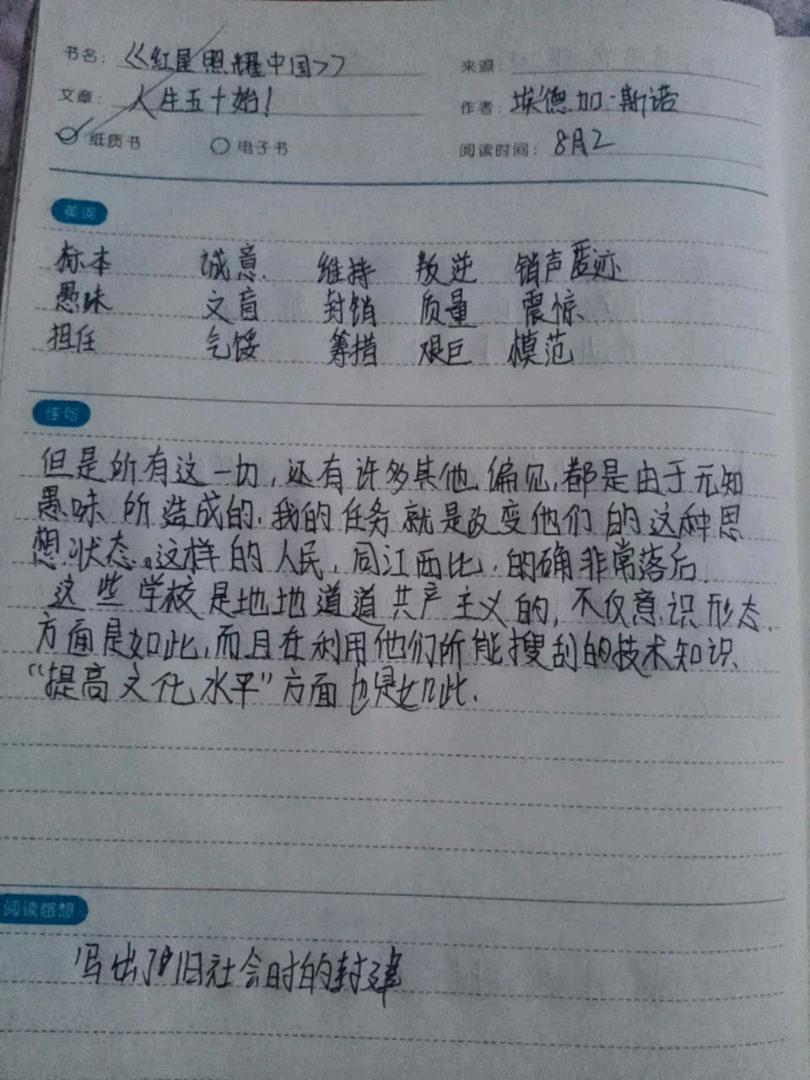 书名： 《红星照耀中国》 来源：
文章： 人生五十始！ 作者： 埃德加·斯诺
纸质书 电子书 阅读时间： 8月2
美词
标本 诚意 维持 叛逆 销声匿迹
愚昧 文盲 封销 质量 震惊
担任 气馁 筹措 艰巨 模范
佳句
但是所有这一切，还有许多其他偏见，都是由于无知
愚昧所造成的，我的任务就是改变他们的这种思
想状态。这样的人民，同江西比，的确非常落后．
这些学校是地地道道共产主义的，不仅意识形态
方面是如此，而且在利用他们所能搜刮的技术知识、
“提高文化水平”方面也是如此．
阅读感想
写出了旧社会时的封建